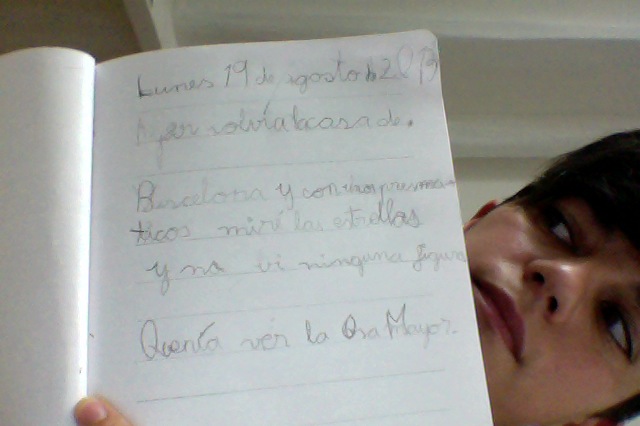 Lunes 19 de agosto de 2013
Ayer volvía a casa de.
Barcelona y con los prismá-
ticos miré las estrellas
y no vi ninguna figura
Quería ver la Osa Mayor.